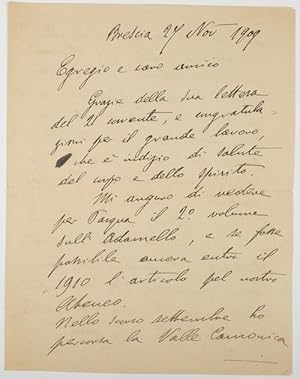 Brescia 27 Nov 1909
Egregio e caro amico
Grazie della sua lettera
del 21 corrente, e congratula
zioni per il grande lavoro,
che è indizio di salute
del corpo e dello spirito.
Mi auguro di vedere
per Pasqua il 2º volume
sull' Adamello, e se fosse
possibile ancora entro il
1910 l'articolo pel nostro
Ateneo.
Nello scorso settembre ho
percorsa la Valle Camonica